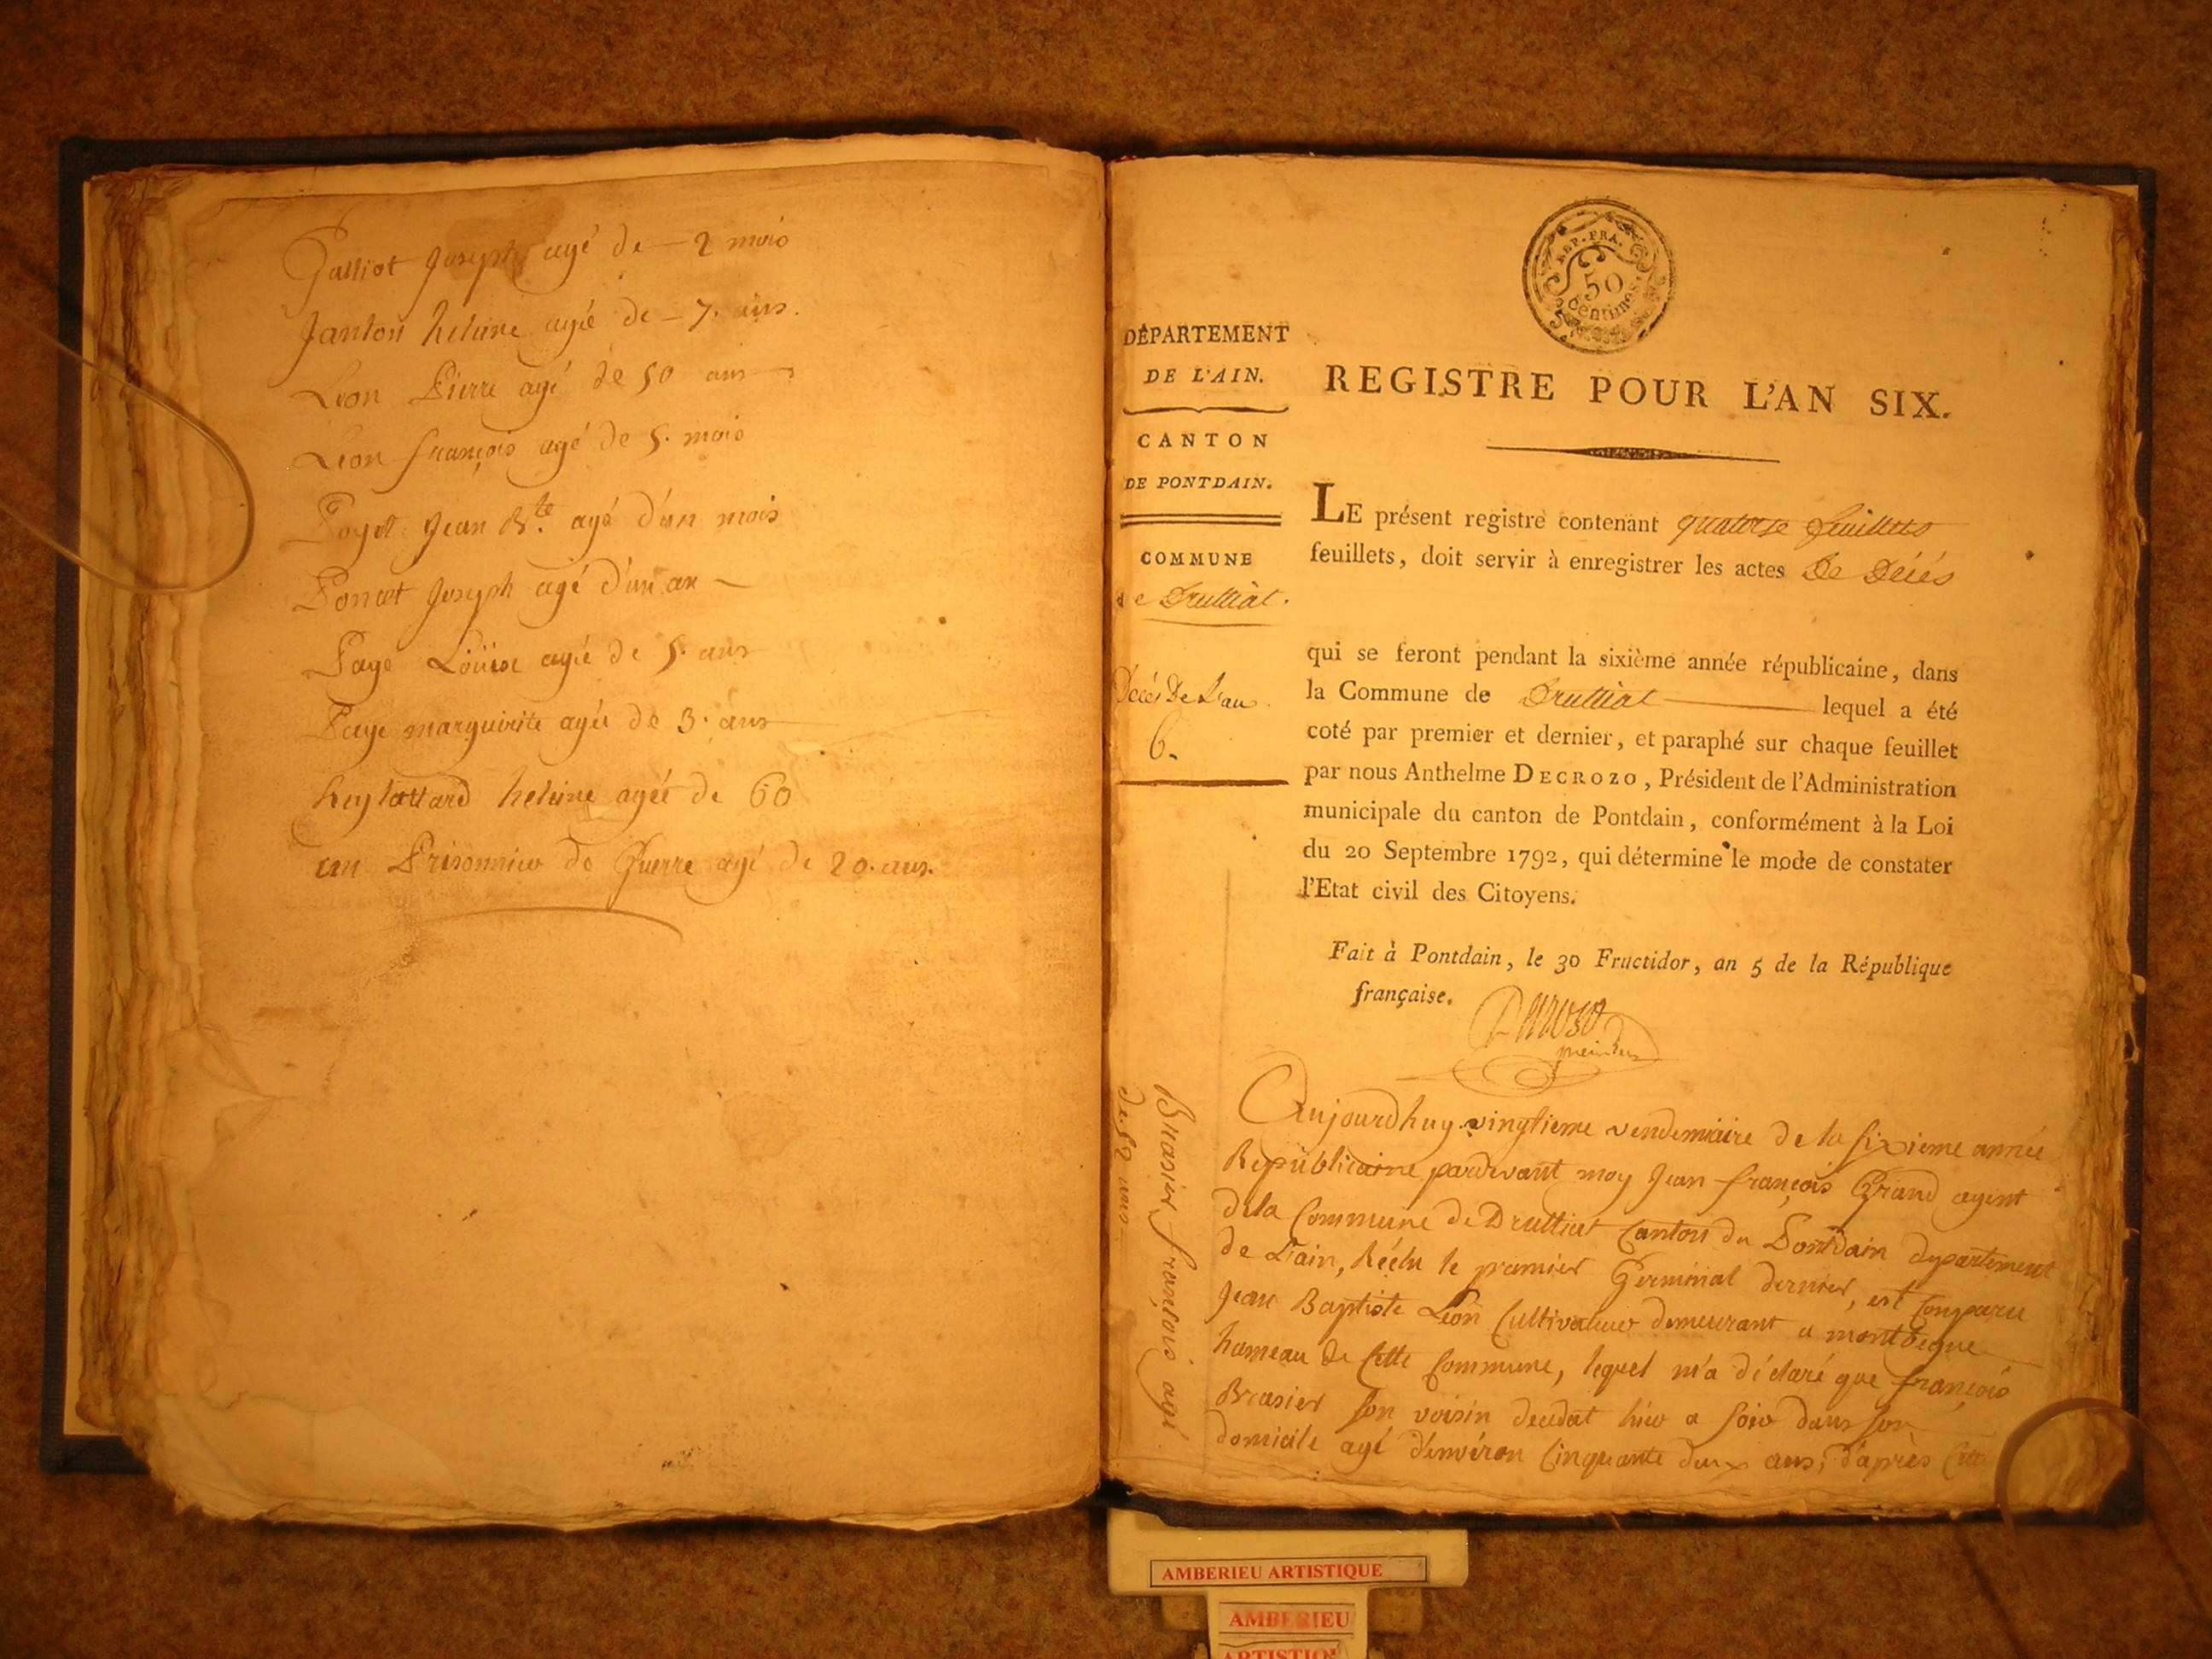 Galliot Joseph agé de - 2 mois
Janton helene agée de - 7. ans.
Léon Pierre agé de 50 ans
Léon françois agé de 5. mois
Poget Jean Bte. agé d'un mois
Poncet Joseph agé d'un an -
Page Loüise agée de 5. ans
Page marguerite agée de 3. ans
helene agée de 60
un Prisonnier de Guerre agé de 20. ans.
REP. FRA.
50
centimes
DÉPARTEMENT
DE L'AIN.
CANTON
DE PONTDAIN.
COMMUNE
de Druilliat.
Décés De L'an
6.
REGISTRE POUR L'AN SIX.
LE présent registre contenant quatorze feuillets
feuillets, doit servir à enregistrer les actes De Décés
qui se feront pendant la sixième année républicaine, dans
la Commune de Druilliat lequel a été
coté par premier et dernier, et paraphé sur chaque feuillet
par nous Anthelme DECROZO, Président de l'Administration
municipale du canton de Pontdain, conformément à la Loi
du 20 Septembre 1792, qui détermine le mode de constater
l'Etat civil des Citoyens.
Fait à Pontdain, le 30 Fructidor, an 5 de la République
française.
Brasier françois agé
de 52 ans
Aujourdhuy vingtieme vendemiaire de la sixieme année
Republicaine pardevant moy Jean françois Grand agent
dela Commune de Drulliat Canton du Pontdain departement
de L'ain, Réélu le premier Germinal dernier, est comparu
Jean Baptiste Léon Cultivateur demeurant a
hameau de Cette Commune, lequel m'a déclaré que françois
Brasier son voisin decedat hier a soir dans son
domicile agé d'environ Cinquante deux ans, d'après Cette
AMBERIEU ARTISTIQUE
AMBERIEU
ARTISTIQ